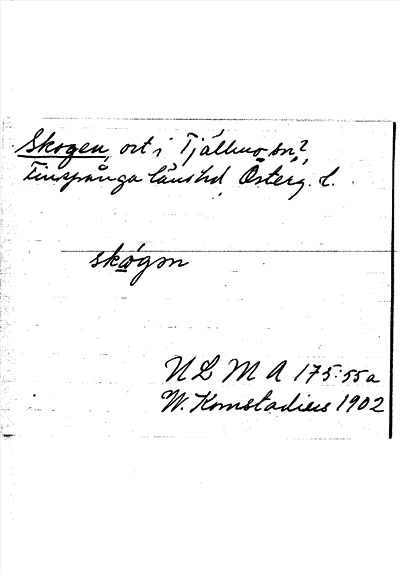 Skogen, ort i Tjällmo sn?,
Finspånga länshd, Österg. l.
skógən
ULMA 175:55a
W. Komstadius 1902